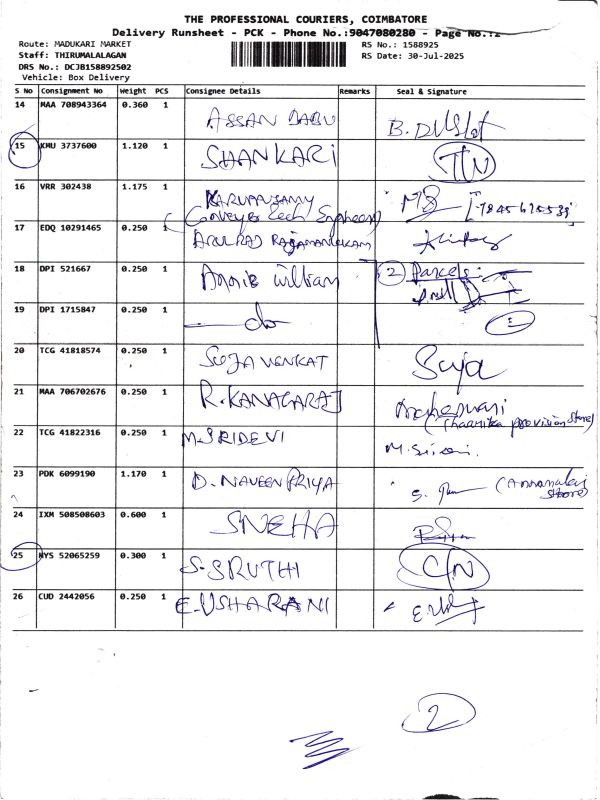 THE PROFESSIONAL COURIERS, COIMBATORE
Delivery Runsheet - PCK - Phone No.:9047080280 - Page No.:2
Route: MADUKARI MARKET
Staff: THIRUMALALAGAN
DRS No.: DCJB158892502
Vehicle: Box Delivery
RS No.: 1588925
RS Date: 30-Jul-2025
S No Consignment No Weight PCS Consignee Details Remarks Seal & Signature
14 MAA 708943364 0.360 1 ASSAN BABU
15 KMU 3737600 1.120 1 SHANKARI
16 VRR 302438 1.175 1 KARUPPASAMY
17 EDQ 10291465 0.250 1 ARULRAJ
18 DPI 521667 0.250 1 Annie William 2 Parcels
19 DPI 1715847 0.250 1 do
20 TCG 41818574 0.250 1 SUJA VENKAT Suja
21 MAA 706702676 0.250 1 R. KANAGARAJ
(Thaarnika provision store)
22 TCG 41822316 0.250 1 M. SRIDEVI
23 PDK 6099190 1.170 1 D. NAVEEN PRIYA (Annamalai store)
24 IXM 508508603 0.600 1 SNEHA
25 NYS 52065259 0.300 1 S. SRUTHI C/N
26 CUD 2442056 0.250 1 E. USHARANI
2